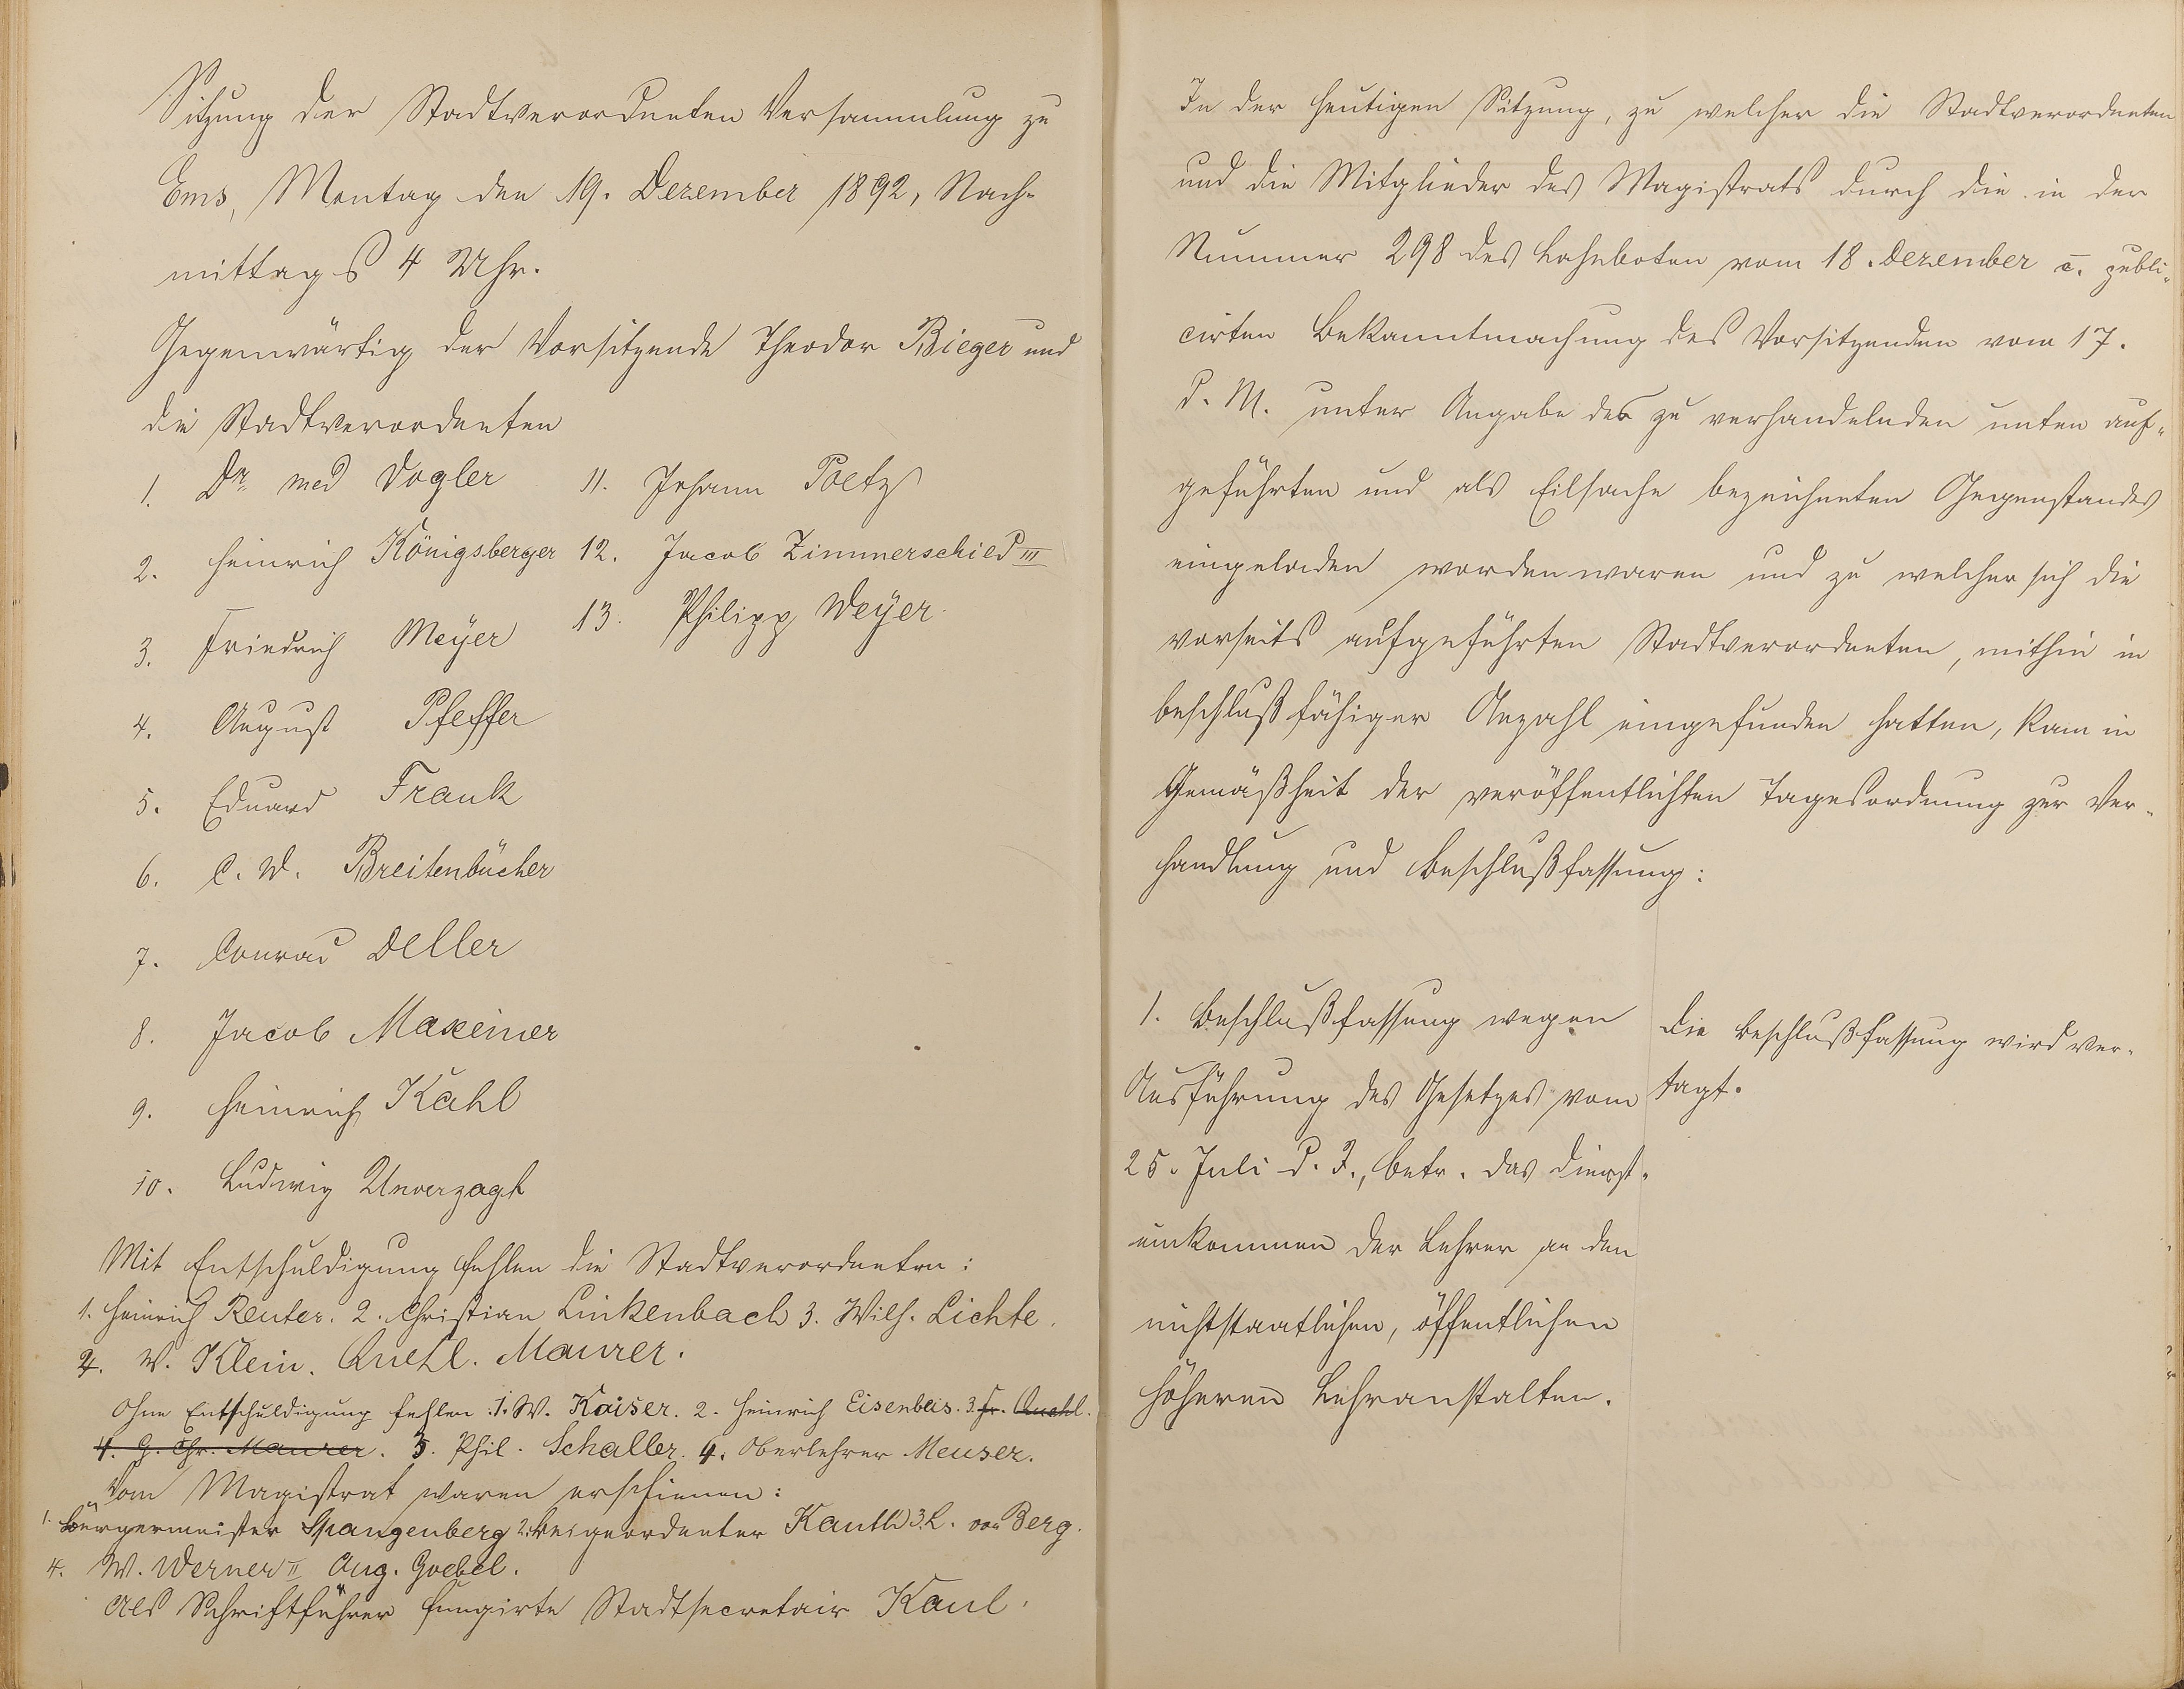 Sitzung der Stadtverordneten Versammlung zu
Ems, Montag den 19. Dezember 1892, Nach-
mittags 4 Uhr.
Gegenwärtig der Vorsitzende Theodor Bieger und
die Stadtverordneten
1. Dr. med Vogler
2. Heinrich Königsberger
3. Friedrich Meyer
4. August Pfeffer
5. Eduard Frank
6. C. W. Breitenbücher
7. Conrad Deller
8. Jacob Maxeiner
9. Heinrich Kahl
10. Ludwig Unverzagt
11. Johann Poetz
12. Jacob Zimmerschied III
13. Philipp Weyer.
Mit Entschuldigung fehlen die Stadtverordneten:
1. Heinrich Reuter. 2. Christian Linkenbach 3. Wilh. Lichte.
4. W. Klein. Quehl. Maurer.
Ohne Entschuldigung fehlen: 1. W. Kaiser. 2. Heinrich Eisenbeis. 3. Fr. Quehl.
4. G. Chr. Maurer. 3. Phil. Schaller. 4. Oberlehrer Meuser.
Vom Magistrat waren erschienen:
1. Bürgermeister Spangenberg 2. Beigeordneter Kauth 3. L. von Berg.
4. W. Werner II Aug. Goebel.
Als Schriftführer fungirte Stadtsecretair Kaul.
In der heutigen Sitzung, zu welcher die Stadtverordneten
und die Mitglieder des Magistrats durch die in der
Nummer 298 des Lahnboten vom 18. Dezember c. publi-
cirten Bekanntmachung des Vorsitzenden vom 17.
d. M. unter Angabe des zu verhandelnden unten auf-
geführten und als Eilsache bezeichneten Gegenstandes
eingeladen worden waren und zu welcher sich die
vorseits aufgeführten Stadtverordneten, mithin in
beschlußfähiger Anzahl eingefunden hatten, kam in
Gemäßheit der veröffentlichten Tagesordnung zur Ver-
handlung und Beschlußfassung:
1. Beschlußfassung wegen
Ausführung des Gesetzes vom
25. Juli d. J., betr. das Dienst-
einkommen der Lehrer an den
nichtstaatlichen, öffentlichen
höheren Lehranstalten.
Die Beschlußfassung wird ver-
tagt.